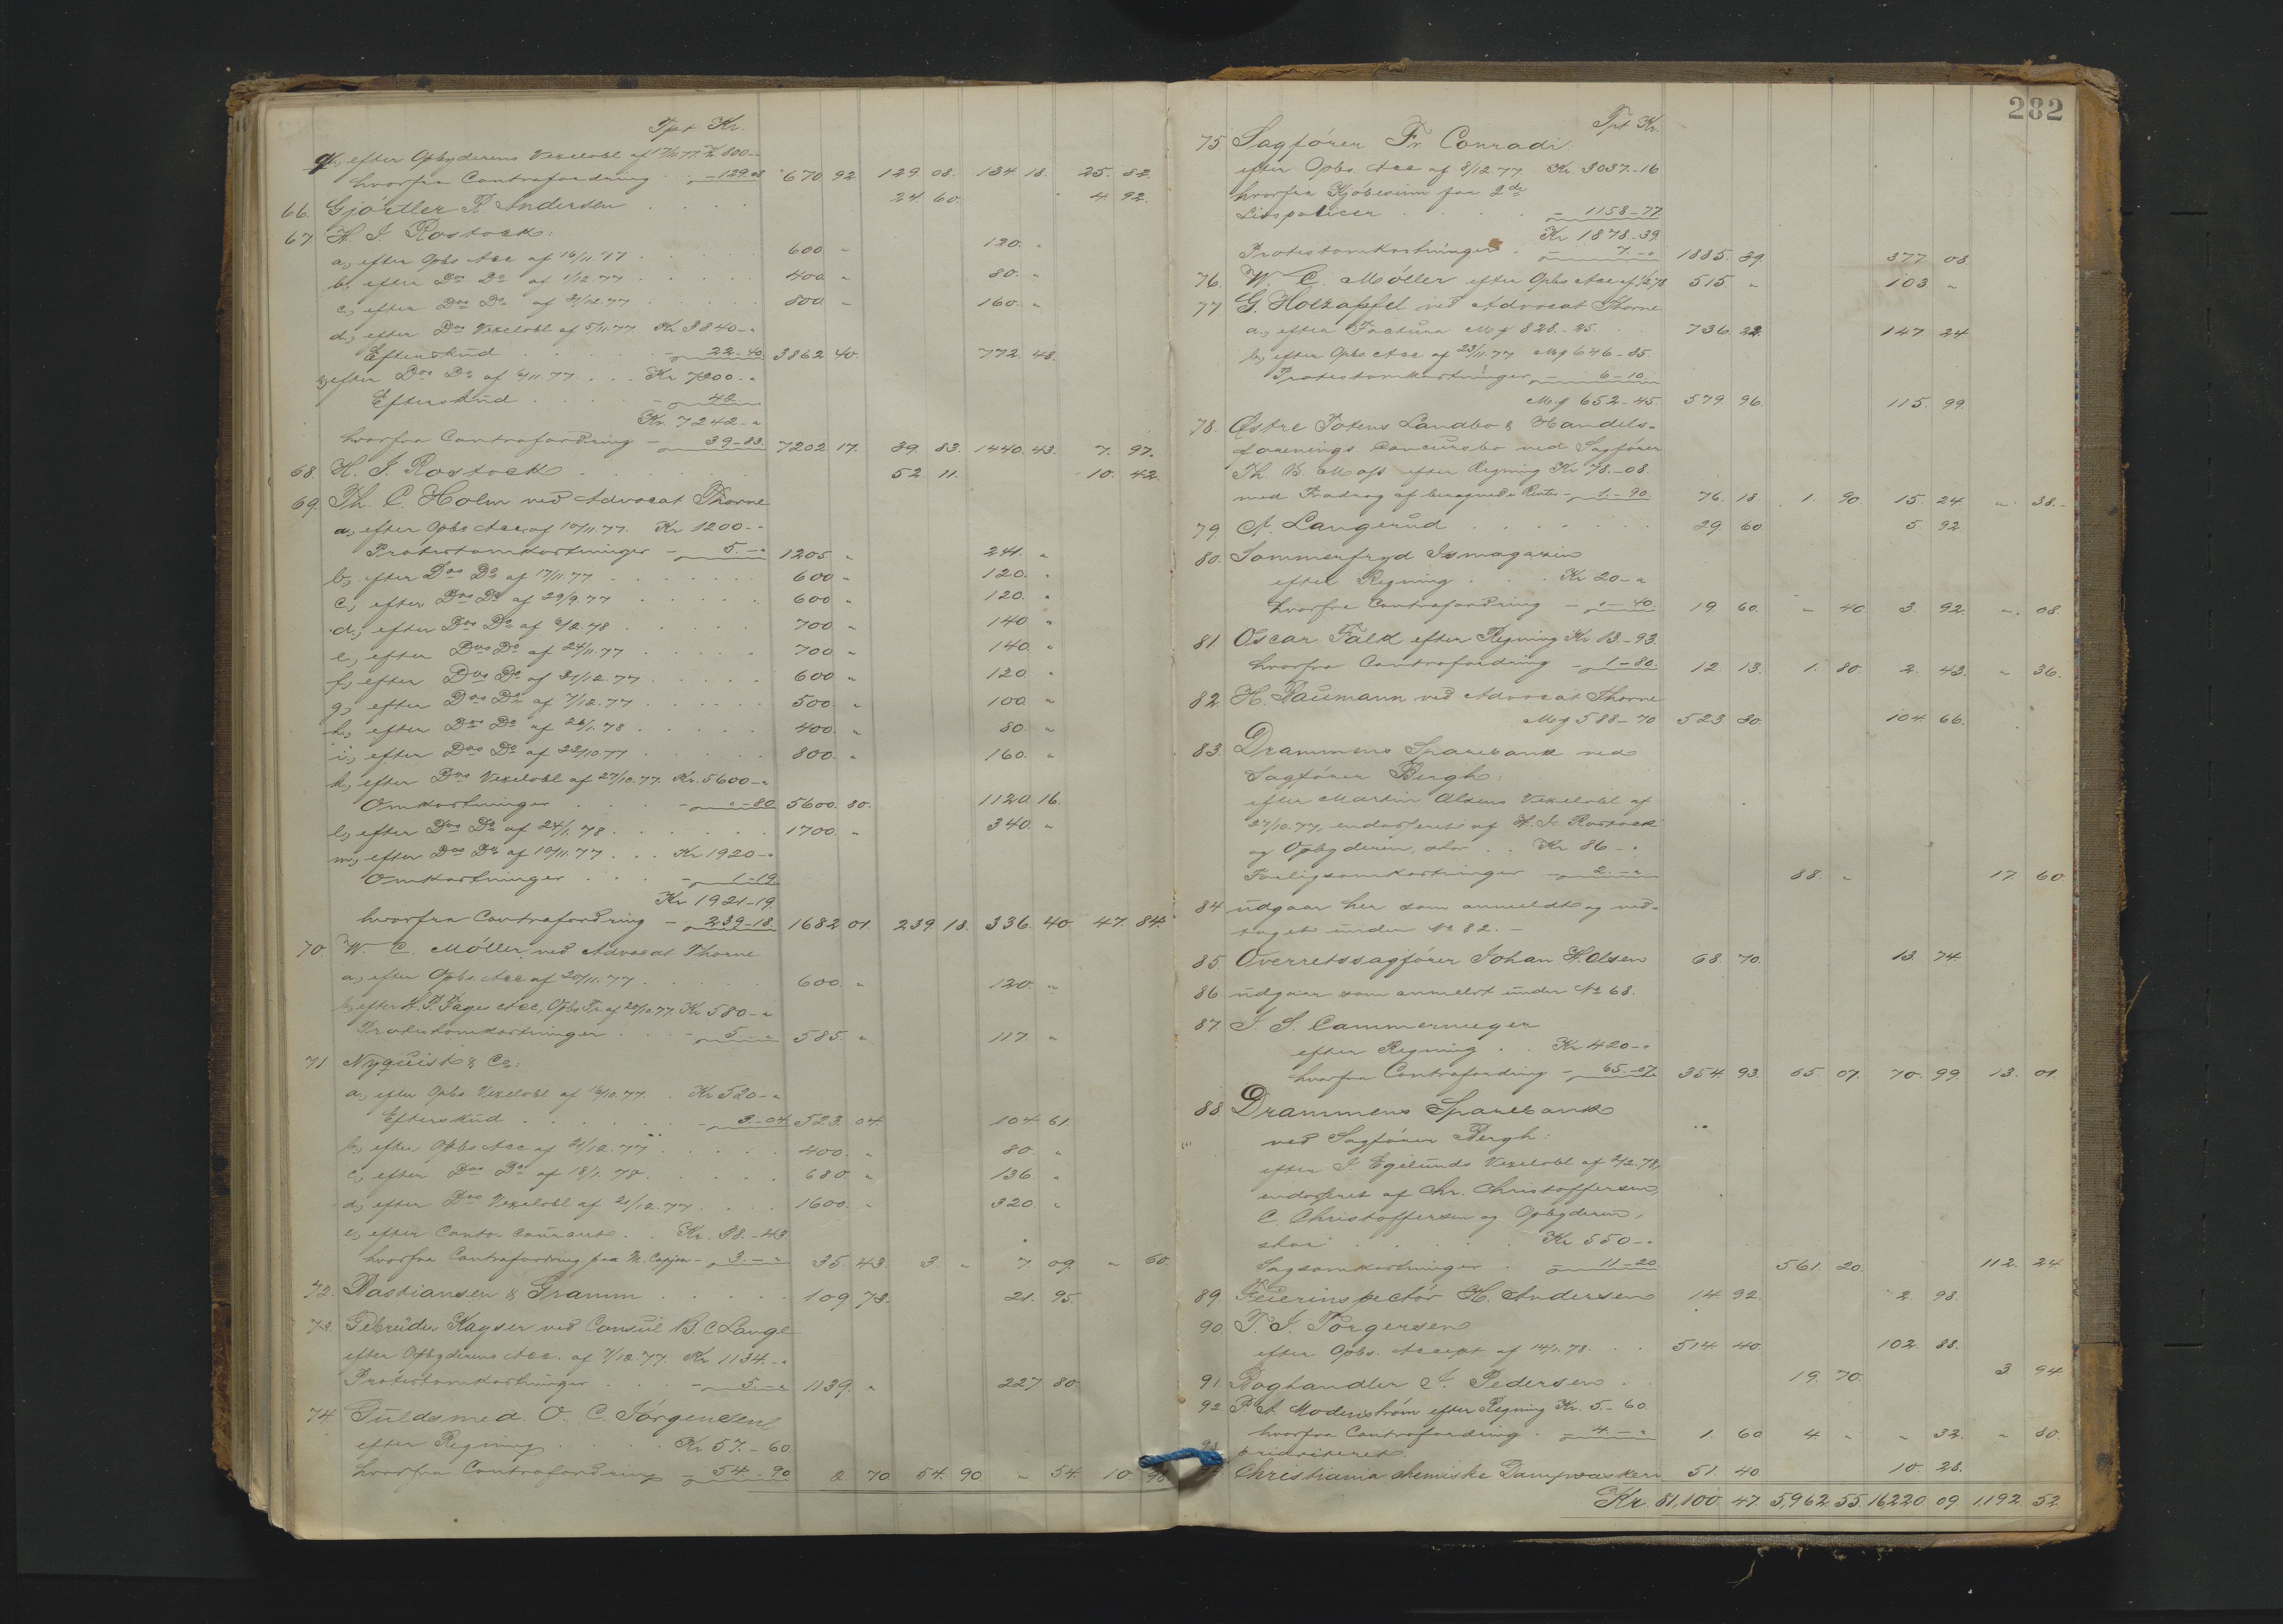 Tpt Kr.
g, efter Opbyderens Vexelobl af 17/10 77 Kr 800 - "
hvorfra Contrafordring - 129.08 670 92 129 08. 134 18. 25. 82.
66. Gjørtler R. Andersen . . . . 24 60. 4 92.
67 H. J. Rostock:
a, efter Opbs Acc af 16/11.77 . . . . 600 " 120. "
b, efter Dos Do af 1/12.77 . . . . 400 " 80. "
c, efter Dos Do af 31/12.77 . . . . 800 " 160. "
d, efter Dos Vexelobl af 5/11.77 Kr 3840 - "
Efterskud . . . . - 22-40 3862 40. 772 48.
e, efter Dos Do af 6/11.77 . . . Kr 7200 - "
Efterskud . . . . - 42 - "
Kr. 7242 - "
hvorfra Contrafordring - 39-83. 7202 17. 39. 83. 1440. 43. 7. 97.
68. H. J. Rostock . . . . 52. 11. 10. 42.
69. Th. C. Holm ved Advocat Thorne
a, efter Opbs Acc. af 10/11.77. Kr 1200 - "
Protestomkostninger - 5. - " 1205 " 241. "
b, efter Dos Do af 17/11.77 . . . . 600 " 120. "
c, efter Dos Do af 29/9.77 . . . . 600 " 120. "
d, efter Dos Do af 6/2.78 . . . . 700 " 140 "
e, efter Dos Do af 24/11.77 . . . . 700 " 140. "
f, efter Dos Do af 31/12.77 . . . . 600 " 120. "
g, efter Dos Do af 7/12.77 . . . . 500 " 100. "
h, efter Dos Do af 26/1.78 . . . . 400. " 80. "
i, efter Dos Do af 22/10.77 . . . . 800. " 160. "
k, efter Dos Vexelobl af 27/10.77. Kr. 5600 - "
Omkostninger . . . - " - 80 5600. 80. 1120. 16.
l, efter Dos Do af 24/1.78 . . . . 1700. " 340. "
m, efter Dos Do af 10/11.77 . . . Kr 1920 - "
Omkostninger . . . - 1-19
Kr 1921-19.
hvorfra Contrafordring - 239-18. 1682 01. 239. 18. 336. 40. 47. 84.
70. W. C. Møller ved Advocat Thorne
a, efter Opbs. Acc af 20/11.77 . . . . 600. " 120. "
b, efter H. P. Acc, Opbs Tr. af 20/10.77. Kr 580 - "
Protestomkostninger . . - 5 - " 585. " 117. "
71. Nyquist & Co:
a, efter Opbs Vexelobl af 16/10.77 . Kr 520 - "
Efterskud . . . . - 3.-04. 523. 04. 104 61.
b, efter Opbs Acc af 21/12.77 . . . . 400. " 80. "
c, efter Dos Do af 18/1.78. . . . . 680. " 136. "
d, efter Dos Vexelobl af 21/12.77 . . . . 1600. " 320. "
e, efter Conto-Courant. . Kr. 38.-43
hvorfra Contrafordring paa M. - 3. - " 35. 43. 3. " 7. 09. " 60.
72. Bastiansen & Gramm . . . . . 109 73. 21. 95.
73. Gebrüder Kayser ved Consul B. C. Lange
efter Opbyderens Acc. af 7/12.77. Kr 1134. - "
Protestomkostninger . . - 5. - " 1139. " 227 80.
74. Guldsmed. O. C. Jørgensen
efter Regning . . . . Kr 57.-60
hvorfra Contrafordring - 54-90 2. 70 54. 90 " 54. 10. 98.
282
Tpt Kr.
75. Sagfører Fr. Conradi.
efter Opbs. Acc af 8/12.77. Kr. 3037.-16
hvorfra Kjøbesum for 2de
Livspolicer . . . . - 1158-77.
Kr 1878-39.
Protestomkostninger . - 7. - " 1885. 39. 377. 08.
76. W. C. Møller efter Opbs Acc af 1/2 78 515. " 103. "
77 G. Holzapfel ved Advocat Thorne
a, efter Factura Mg 828.-25. 736. 22. 147. 24
b, efter Opbs Acc af 23/11.77 Mg 646-35.
Protestomkostninger - 6-10.
Mg 652-45. 579. 96. 115. 99.
78. Østre Totens Landbo & Handels-
forenings Concursbo ved Sagfører
Th. B. efter Regning Kr 78.-08.
med Fradrag af beregnede Renter - 1.-90. 76. 18. 1. 90. 15. 24. " 38.-
79. A. Langerud . . . . . 29. 60. 5. 92
80. Sommerfryd Ismagazin
efter Regning . . . Kr 20 - "
hvorfra Contrafordring - " - 40. 19. 60. " 40 3. 92 " 08
81. Oscar Falck efter Regning Kr 13.-93.
hvorfra Contrafordring - 1-80. 12. 13. 1. 80. 2. 43. " 36.
82. H. Baumann ved Advocat Thorne
Mg 588-70 523 30. 104 66.
83. Drammens Sparebank ved
Sagfører Bergh:
efter Martin Olsens Vexelobl af
27/10.77, endosseret af H. J. Rostock
og Opbyderen, stor . . Kr 86 - "
Forligsomkostninger - 2. - " 88. " 17. 60.
84 udgaar her som anmeldt og med-
taget under No 82. -
85. Overretssagfører Johan H. Olsen 68. 70. 13. 74.
86 udgaar som anmeldt under No 68.
87. J. S. Cammermeyer
efter Regning . . Kr 420 - "
hvorfra Contrafordring - 65.-07. 354. 93. 65. 07. 70. 99. 13. 01.
88 Drammens Sparebank
ved Sagfører Bergh:
efter J. Egelunds Vexelobl af 2/2.78,
endosseret af Chr. Christoffersen,
C. Christoffersen og Opbyderen,
stor . . . . . Kr 550 - "
Sagsomkostninger . - 11-20 561. 20. 112. 24
89. H. Andersen 14. 92. 2. 98.
90 T. J. Torgersen
efter Opbs. Accept af 14/1.78. . . 514. 40. 102. 88.
91. Boghandler J. Pedersen . . 19. 70. 3. 94
92. P. A. Modenstrøm efter Regning Kr. 5.-60
hvorfra Contrafordring . - 4. - " 1. 60 4. " " 32. " 80.
93 prioriteret.
94 Christiania chemiske Dampvaskeri 51. 40. 10. 28.
Kr. 81,100. 47. 5,962. 55. 16,220. 09. 1,192. 52.